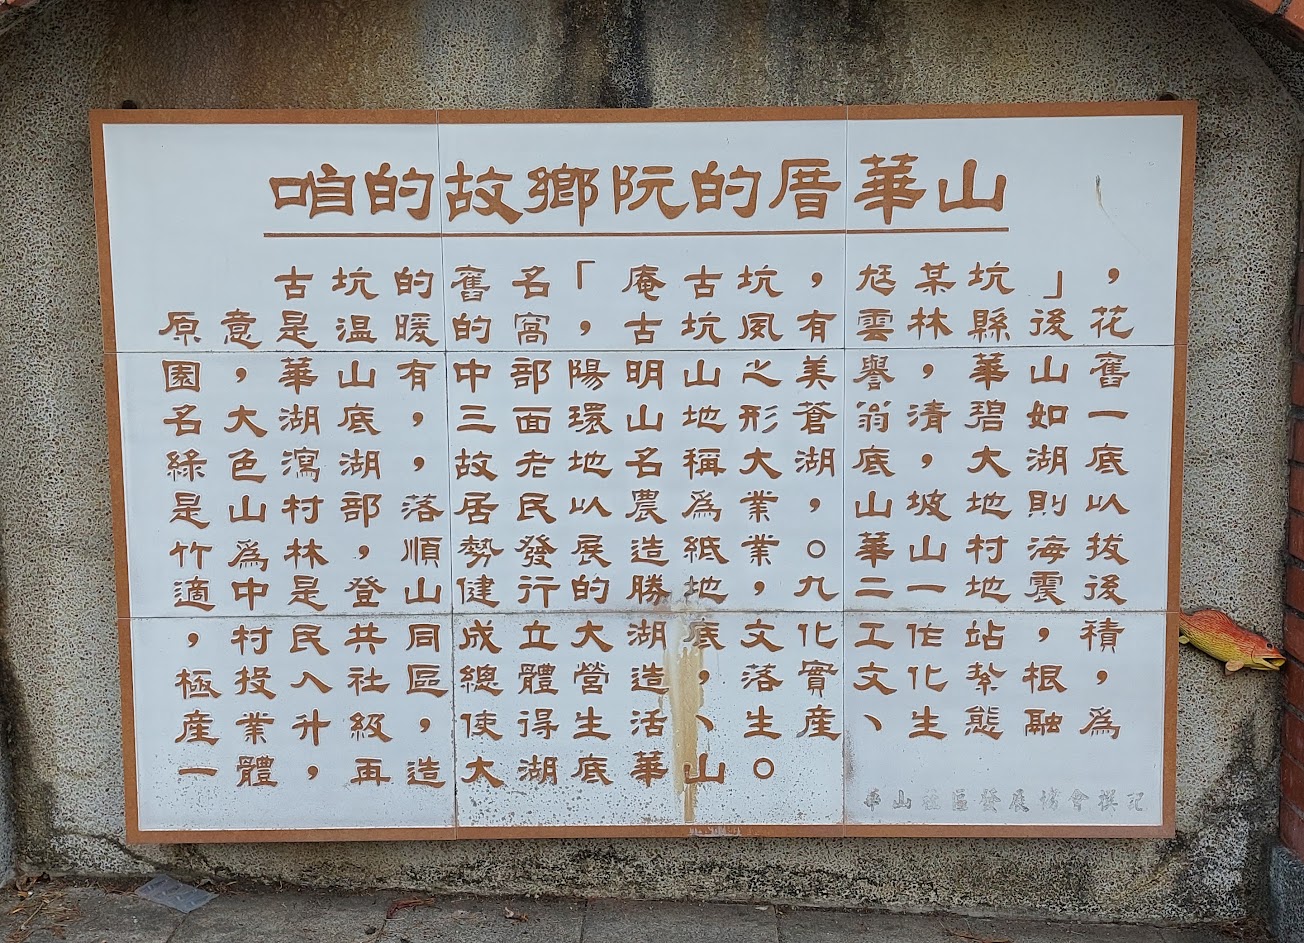 咱的故鄉阮的厝華山
古坑的舊名「庵古坑，尪某坑」，
原意是溫暖的窩，古坑夙有雲林縣後花
園，華山有中部陽明山之美譽，華山舊
名大湖底，三面環山地形蒼翁清碧如一
綠色瀉湖，故老地名稱大湖底，大湖底
是山村部落居民以農為業，山坡地則以
竹為林，順勢發展造紙業。華山村海拔
適中是登山健行的勝地，九二一地震後
，村民共同成立大湖底文化工作站，積
極投入社區總體營造，落實文化紮根，
產業升級，使得生活、生產、生態融為
一體，再造大湖底華山。
華山社區發展協會撰記